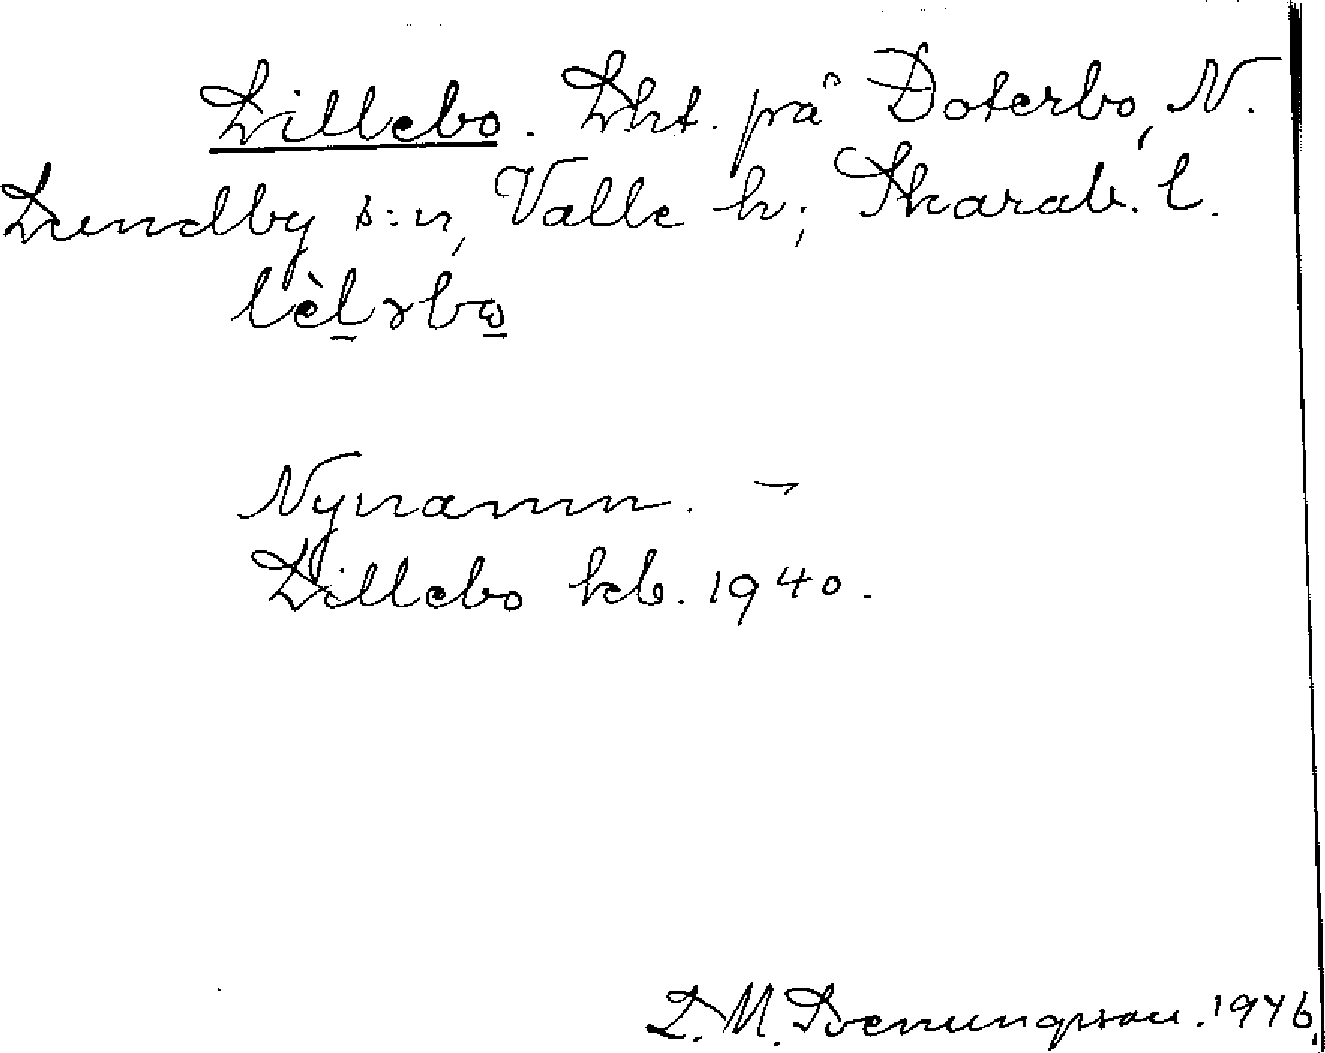 Lillebo. Lht. på Doterbo, N.
Lundby s:n, Valle h; Skarab. l.
lèlrbo
Nynamn. –
Lillebo kb. 1940.
L. M. Svenungsson. 1946